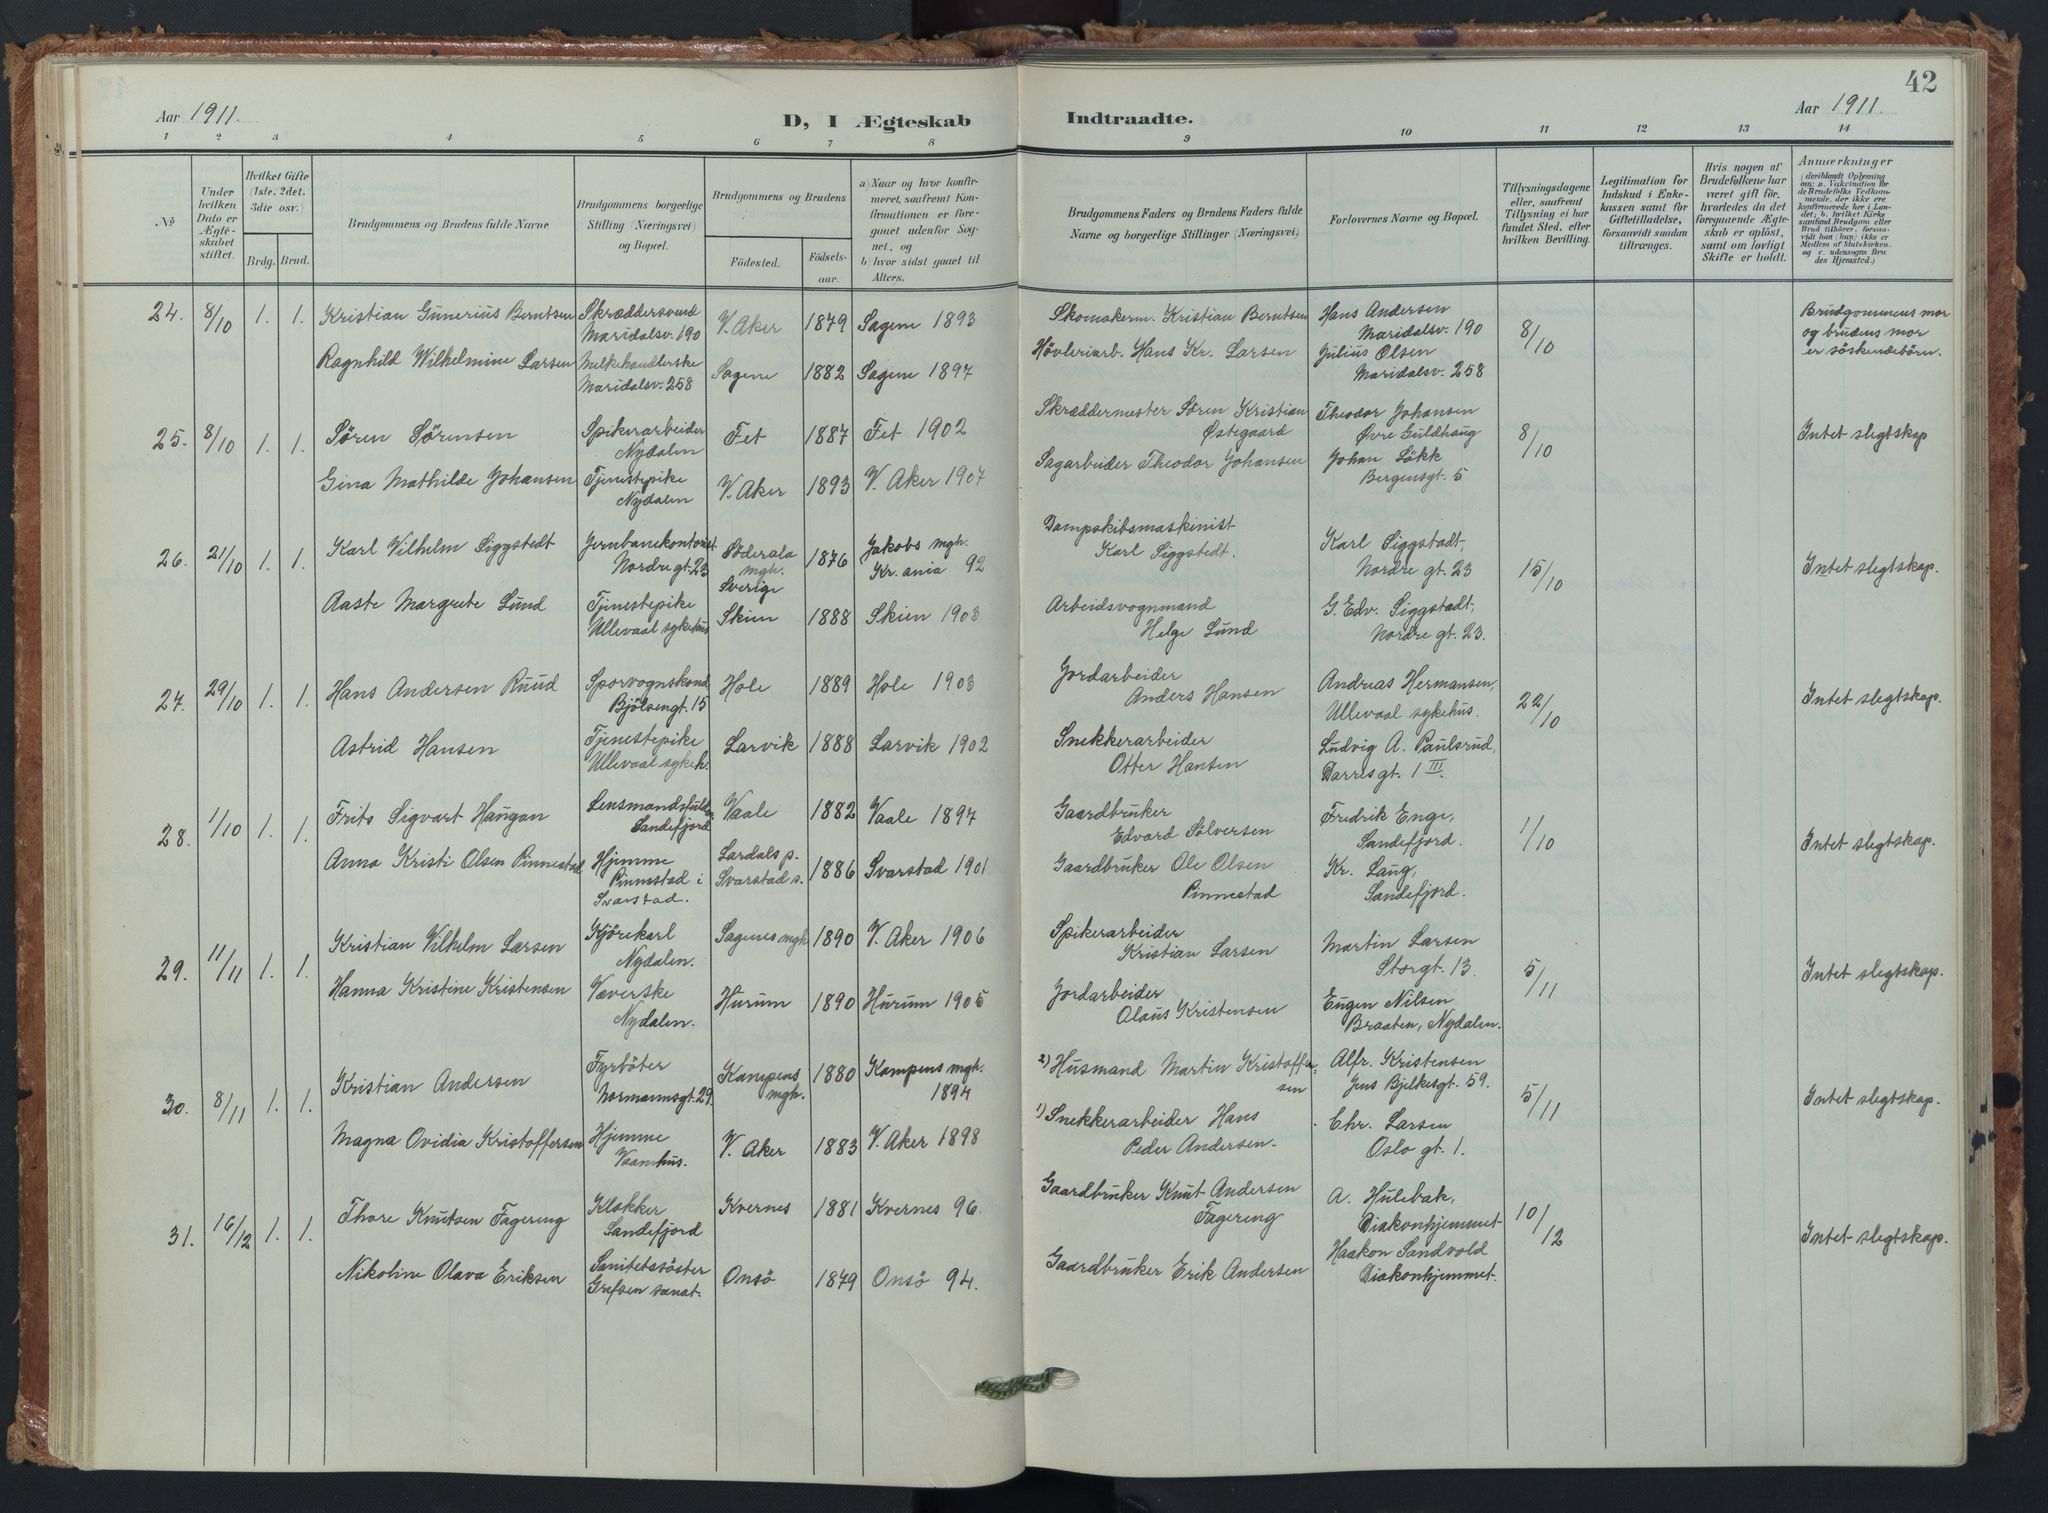 42
Aar 1911.
D, I Ægteskab
Indtraadte.
Aar 1911.
1 2 3 4 5 6 7 8 9 10 11 12 13 14
№
Under hvilken Dato er Ægteskabet stiftet.
Hvilket Gifte (1ste, 2det, 3die osv.)
Brdg. Brud.
Brudgommens og Brudens fulde Navne
Brudgommens borgerlige Stilling (Næringsvei) og Bopæl.
Brudgommens og Brudens
Fødested. Fødselsaar.
a) Naar og hvor konfirmeret, saafremt Konfirmationen er foregaaet udenfor Sognet, og
b) hvor sidst gaaet til Alters.
Brudgommens Faders og Brudens Faders fulde Navne og borgerlige Stillinger (Næringsvei).
Forlovernes Navne og Bopæl.
Tillysningsdagene eller, saafremt Tillysning ei har fundet Sted, efter hvilken Bevilling.
Legitimation for Indskud i Enkekassen samt for Giftetilladelse, forsaavidt saadan tiltrænges.
Hvis nogen af Brudefolkene har været gift før, hvorledes da det foregaaende Ægteskab er opløst, samt om lovligt Skifte er holdt.
Anmærkninger (deriblandt Oplysning om: a. Vakcination for de Brudefolks Vedkommende, der ikke ere konfirmerede her i Landet; b. hvilket Kirkesamfund Brudgom eller Brud tilhører, forsaavidt han (hun) ikke er Medlem af Statskirken, og c. udensogns Brudes Hjemsted.)
24. 8/10 1. 1. Kristian Gunerius Berntsen
Skræddersvend
Maridalsv. 190
V. Aker 1879 Sagene 1893
Skomakerm. Kristian Berntsen
Hans Andersen
Maridalsv. 190
8/10
Brudgommens mor
og brudens mor
er söskendebörn.
Ragnhild Wilhelmine Larsen
Melkehandlerske
Maridalsv. 258
Sagene 1882 Sagene 1897
Hövleriarb. Hans Kr. Larsen
Julius Olsen
Maridalsv. 258
25. 8/10 1. 1. Sören Sörensen
Spikerarbeider
Nydalen
Fet 1887 Fet 1902
Skræddermester Sören Kristian
Østegaard
Theodor Johansen
Øvre Guldhaug
8/10
Intet slegtskap
Gina Mathilde Johansen
Tjenestepike
Nydalen
V. Aker 1893 V. Aker 1907
Sagarbeider Theodor Johansen
Johan Lökk
Bergensgt. 5
26. 21/10 1. 1. Karl Vilhelm Siggstedt
Jernbanekontorist
Nordre gt. 23
Söderala
mgh.
Sverige
1876
Jakobs mgh.
Kr.ania 92
Dampskibsmaskinist
Karl Siggstedt.
Karl Siggstadt,
Nordre gt. 23
15/10
Intet slegtskap.
Aaste Margrete Lund
Tjenestepike
Ullevaal sykehus
Skien 1888 Skien 1903
Arbeidsvognmand
Helge Lund
G. Edv. Siggstadt,
Nordre gt. 23.
27. 29/10 1. 1. Hans Andersen Ruud
Sporvognskond.
Bjölsengt. 15
Hole 1889 Hole 1903
Jordarbeider
Anders Hansen
Andreas Hermansen,
Ullevaal sykehus.
22/10
Intet slegtskap.
Astrid Hansen
Tjenestepike
Ullevaal sykeh.
Larvik 1888 Larvik 1902
Snekkerarbeider
Otter Hansen
Ludvig A. Paulsrud,
Darresgt. 1 III.
28. 1/10 1. 1. Frits Sigvart Haugan
Lensmandsfuldm.
Sandefjord
Vaale 1882 Vaale 1897
Gaardbruker
Edvard Sölversen
Fredrik Enge,
Sandefjord.
1/10
Intet slegtskap.
Anna Kristi Olsen Pinnestad
Hjemme
Pinnestad i
Svarstad.
Lardals p.
Svarstad s.
1886 Svarstad 1901
Gaardbruker Ole Olsen
Pinnestad
Kr. Laug,
Sandefjord.
29. 11/11 1. 1. Kristian Vilhelm Larsen
Kjörekarl
Nydalen.
Sagenes mgh 1890 V. Aker 1906
Spikerarbeider
Kristian Larsen
Martin Larsen
Storgt. 13.
5/11
Intet slegtskap.
Hanna Kristine Kristensen
Væverske
Nydalen.
Hurum 1890 Hurum 1905
Jordarbeider
Olaus Kristensen
Eugen Nilsen
Braaten, Nydalen.
30. 8/11 1. 1. Kristian Andersen
Fyrböter
Normannsgt. 29.
Kampens
mgh.
1880
Kampens mgh.
1894
2) Husmand Martin Kristoffersen
Alfr. Kristensen
Jens Bjelkesgt. 59.
5/11
Intet slegtskap.
Magna Ovidia Kristoffersen
Hjemme
V. Aker 1883 V. Aker 1898
1) Snekkerarbeider Hans
Peder Andersen.
Chr. Larsen
Oslo gt. 1.
31. 16/12 1. 1. Thore Knutsen Fagereng
Klokker
Sandefjord
Kvernes 1881 Kvernes 96.
Gaardbruker Knut Andersen
Fagereng
A. Hulebak,
Diakonhjemmet
10/12
Intet slegtskap.
Nikoline Olava Eriksen
Sanitetssöster
Grefsen sanat.
Onsö 1879 Onsö 94.
Gaardbruker Erik Andersen
Haakon Sandvold
Diakonhjemmet.